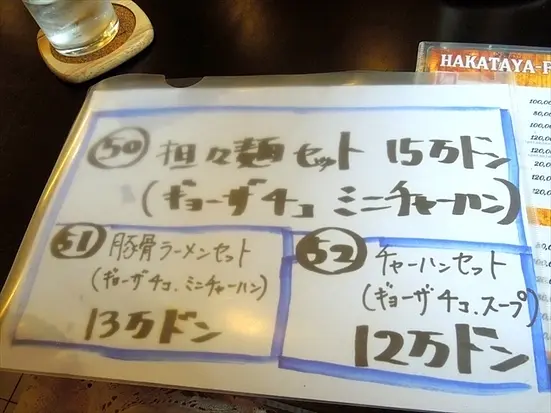 HAKATAYA-F
50 担々麺セット 15万ドン
(ギョーザ4コ ミニチャーハン)
51 豚骨ラーメンセット
(ギョーザ4コ.ミニチャーハン)
13万ドン
52 チャーハンセット
(ギョーザ4コ.スープ)
12万ドン
100,00
80,00
100,0
120,00
120,0
20,00
120,0
120,0